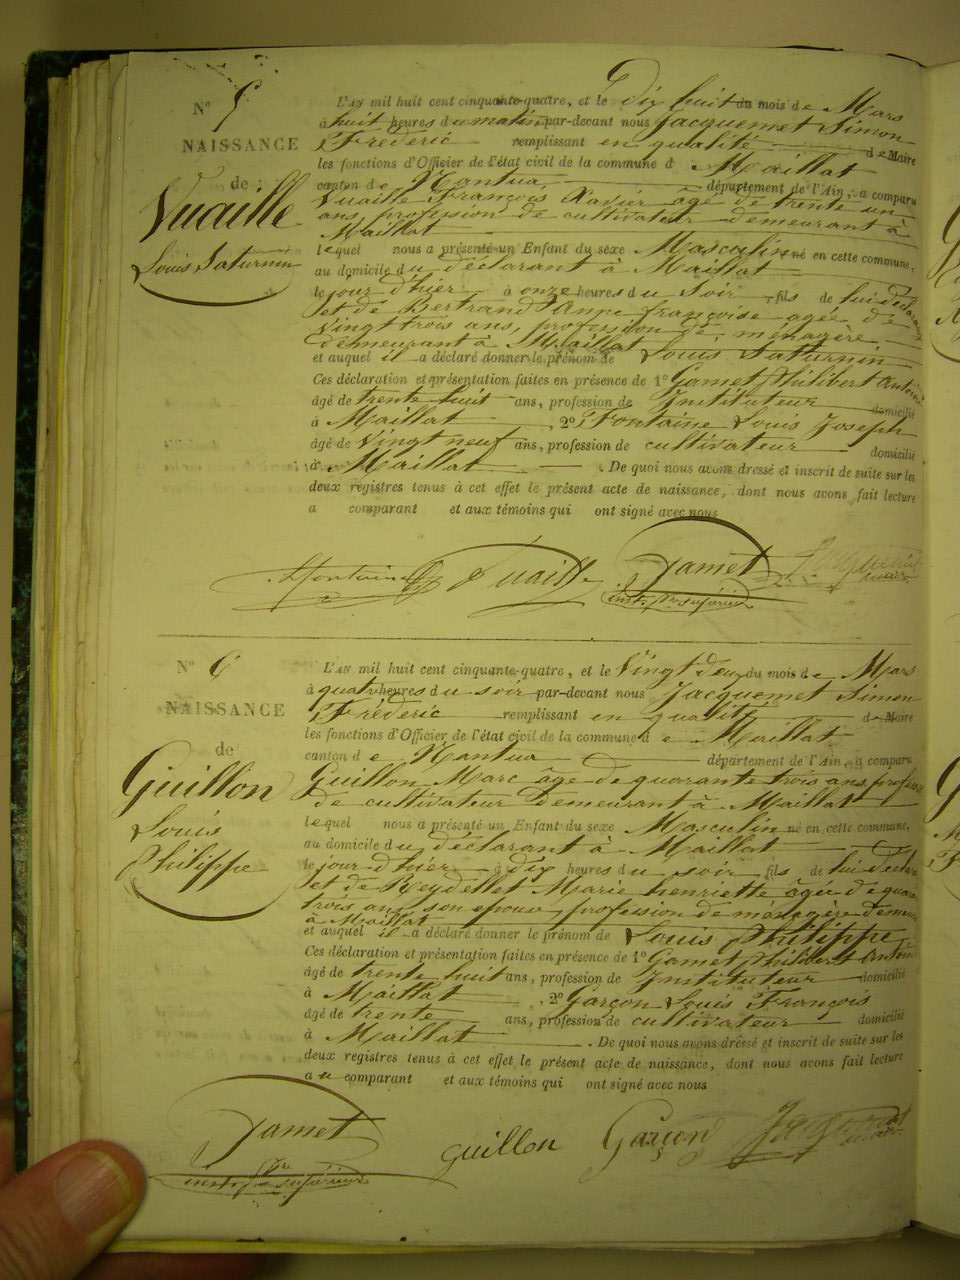 N° 5
NAISSANCE
de
Vuaille
Louis Saturnin
L'AN mil huit cent cinquante-quatre, et le dix huit du mois de Mars
à huit heures du matin par-devant nous Jacquemet Simon
Fréderic remplissant en qualité de Maire
les fonctions d'Officier de l'état civil de la commune d e Maillat
canton d e Nantua département de l'Ain, a comparu
Vuaille François Xavier âgé de trente un
ans, profession de cultivateur demeurant à
Maillat
lequel nous a présenté un Enfant du sexe Masculin né en cette commune,
au domicile du déclarant à Maillat
le jour d'hier à onze heures du soir fils de lui déclarant
et de Bertrand Anne françoise agée de
vingt trois ans, profession de ménagère
demeurant à Maillat
et auquel il a déclaré donner le prénom de Louis Saturnin
Ces déclaration et présentation faites en présence de 1° Gamet Philibert Antoine
âgé de trente huit ans, profession de Instituteur domicilié
à Maillat , 2° Fontaine Louis Joseph
âgé de vingt neuf ans, profession de cultivateur domicilié
à Maillat . De quoi nous avons dressé et inscrit de suite sur les
deux registres tenus à cet effet le présent acte de naissance, dont nous avons fait lecture
a comparant et aux témoins qui ont signé avec nous
Fontaine Vuaille Gamet Jacquemet
instr. pre. supérieur maire
N° 6
NAISSANCE
de
Guillon
Louis
Philippe
L'AN mil huit cent cinquante-quatre, et le vingt deux du mois de Mars
à quatre heures du soir par-devant nous Jacquemet Simon
Fréderic remplissant en qualité de Maire
les fonctions d'Officier de l'état civil de la commune d e Maillat
canton d e Nantua département de l'Ain, a comparu
Guillon Marc âgé de quarante trois ans, profession
de cultivateur demeurant à Maillat
lequel nous a présenté un Enfant du sexe Masculin né en cette commune,
au domicile du déclarant à Maillat
le jour d'hier à dix heures du soir fils de lui déclarant
et de Reydellet Marie henriette âgée de quarante
trois ans son épouse profession de ménagère demeurant
à Maillat
et auquel il a déclaré donner le prénom de Louis Philippe
Ces déclaration et présentation faites en présence de 1° Gamet Philibert Antoine
âgé de trente huit ans, profession de Instituteur domicilié
à Maillat , 2° Garçon Louis François
âgé de trente ans, profession de cultivateur domicilié
à Maillat . De quoi nous avons dressé et inscrit de suite sur les
deux registres tenus à cet effet le présent acte de naissance, dont nous avons fait lecture
a u comparant et aux témoins qui ont signé avec nous
Gamet guillon Garçon Jacquemet
instr. pre. supérieur maire